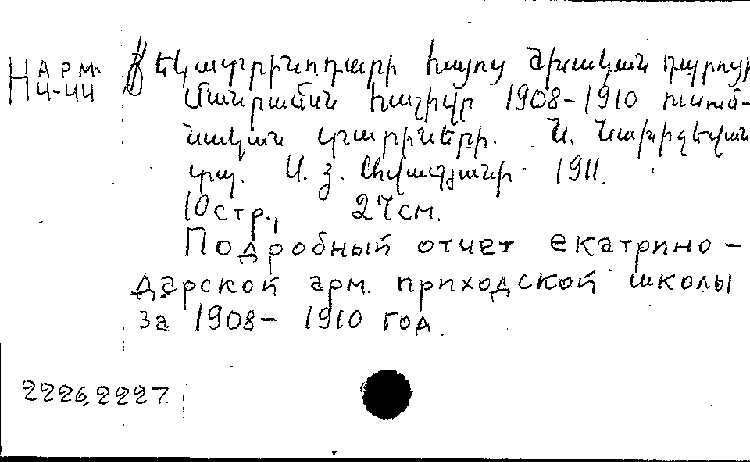 Н АРМ. Եկատրինոդարի հայոց ծխական դպրոցի
4-44 Մանրամասն հաշիվը 1908-1910 ուսում-
նական տարիների. Ն. Նախիջեւան
տպ. Ս. Յ. Ավագյանի 1911.
10 стр., 27 см.
Подробный отчет екатрино-
дарской арм. приходской школы
за 1908- 1910 год.
2226,2227